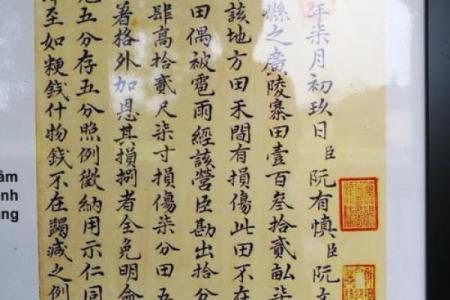 年柒月初玖日臣阮有慎臣阮
縣之廣陵寨田壹百叁拾貳畝柒
該地方田禾間有損傷此田不在
田偶被電雨經該營臣勘出拾分
肆高拾貳尺柒寸損傷柒分田五
著格外加恩其損捌者全免明命
五分存五分照例徵納用示仁同
至如粳錢什物錢不在蠲減之例
âm
nh
ng